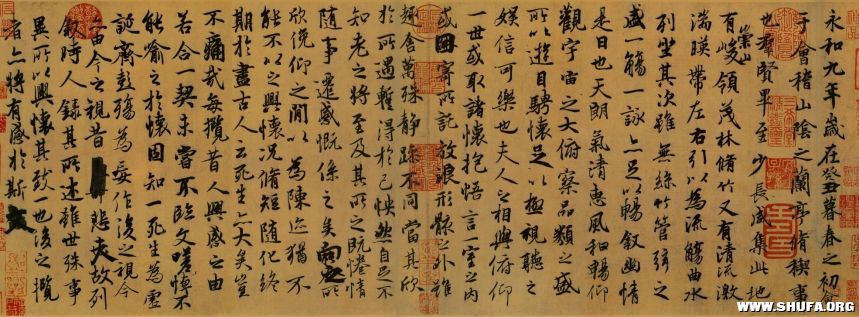 永和九年歲在癸丑暮春之初會
于會稽山陰之蘭亭脩稧事
也群賢畢至少長咸集此地
有崇山峻領茂林脩竹又有清流激
湍暎帶左右引以為流觴曲水
列坐其次雖無絲竹管弦之
盛一觴一詠亦足以暢叙幽情
是日也天朗氣清惠風和暢仰
觀宇宙之大俯察品類之盛
所以遊目騁懷足以極視聽之
娛信可樂也夫人之相與俯仰
一世或取諸懷抱悟言一室之內
或因寄所託放浪形骸之外雖
趣舍萬殊靜躁不同當其欣
於所遇蹔得於己怏然自足不
知老之將至及其所之既惓情
隨事遷感慨係之矣向之所
欣俛仰之閒以為陳迹猶不
能不以之興懷況脩短隨化終
期於盡古人云死生亦大矣豈
不痛哉每攬昔人興感之由
若合一契未嘗不臨文嗟悼不
能喻之於懷固知一死生為虛
誕齊彭殤為妄作後之視今
亦由今之視昔悲夫故列
敘時人錄其所述雖世殊事
異所以興懷其致一也後之攬
者亦將有感於斯文
WWW.SHUFA.ORG